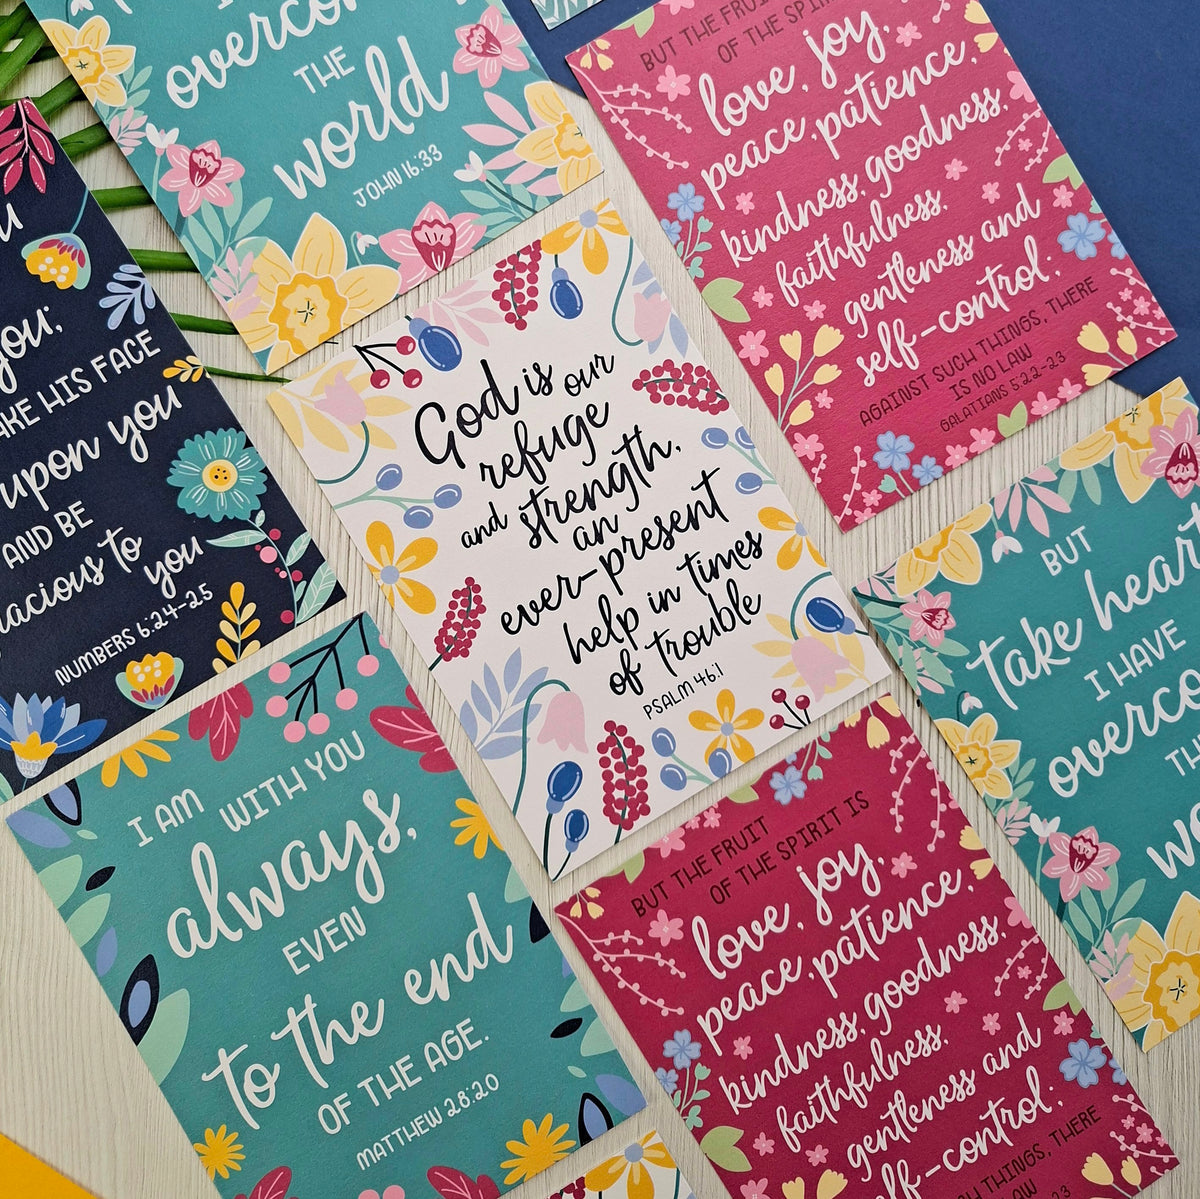 overco
THE
world
JOHN 16:33
BUT THE FRUIT
OF THE SPIRIT
love, joy,
peace, patience,
kindness, goodness,
faithfulness,
gentleness and
self-control;
AGAINST SUCH THINGS, THERE
IS NO LAW
GALATIANS 5:22-23
you;
HIS FACE
upon you
AND BE
to
you
NUMBERS 6:24-25
God is our
refuge
and strength,
an
ever-present
help in times
of trouble
PSALM 46:1
BUT
take heart
I HAVE
overco
I AM WITH YOU
always,
EVEN
to the end
OF THE AGE.
MATTHEW 28:20
BUT THE FRUIT
OF THE SPIRIT IS
love, joy,
peace, patience,
kindness, goodness,
faithfulness,
gentleness and
self-control;
THINGS, THERE